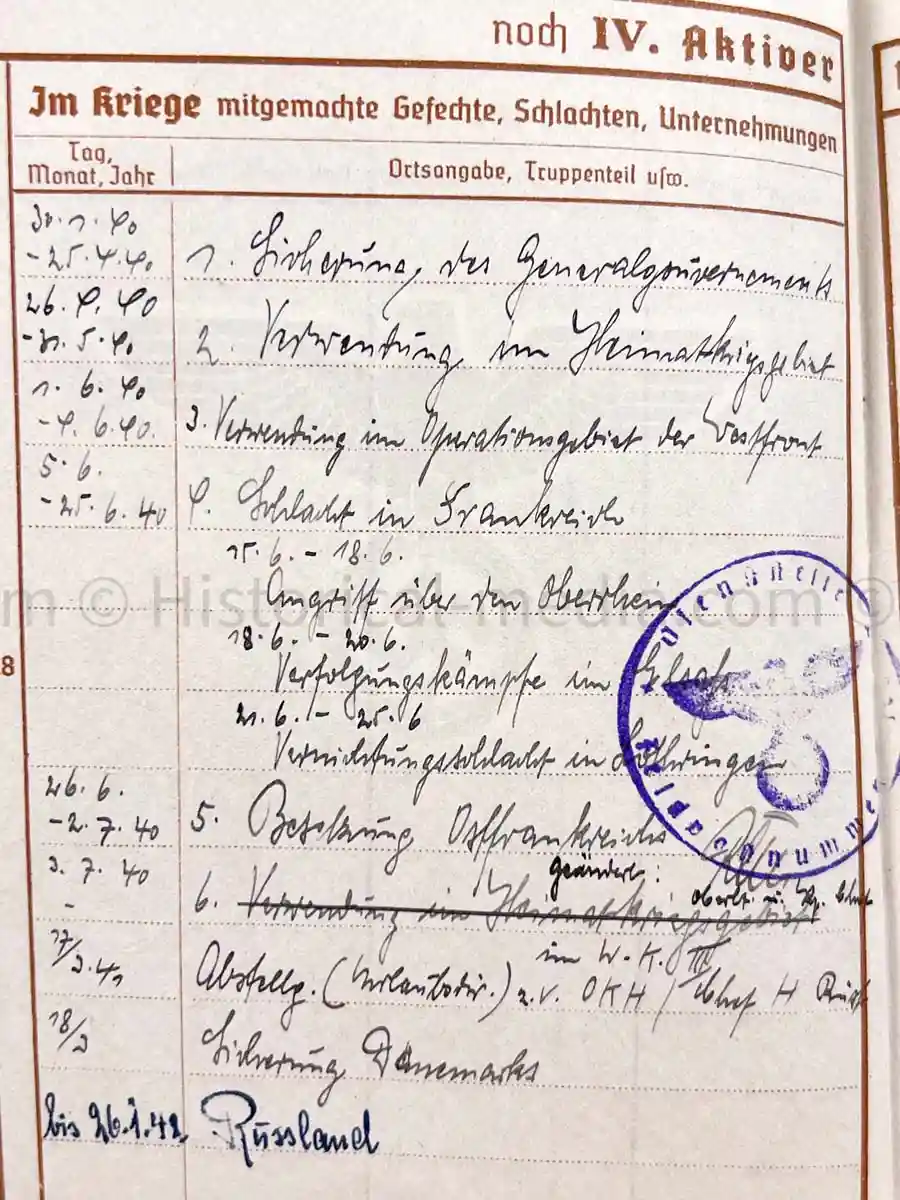 noch IV. Aktiver
Im Kriege mitgemachte Gefechte, Schlachten, Unternehmungen
Tag, Monat, Jahr
Ortsangabe, Truppenteil usw.
30.1.40
-25.4.40 1. Sicherung des Generalgouvernements
26.4.40
-31.5.40 2. Verwendung im Heimatkriegsgebiet
1.6.40
-4.6.40. 3. Verwendung im Operationsgebiet der Westfront
5.6.
-25.6.40 4. Schlacht in Frankreich
15.6. - 18.6.
Angriff über den Oberrhein
18.6. - 20.6.
Verfolgungskämpfe im Elsass
21.6. - 25.6
Vernichtungsschlacht in Lothringen
26.6.
-2.7.40 5. Besetzung Ostfrankreichs
geändert:
Oberlt. u. Kp. Chef
3.7.40 - 6. Verwendung im Heimatkriegsgebiet
im W.K. III
17/3.41 Abstellg. (Urlaubsdiv.) z.V. OKH / Chef H Rüst
18/3 Sicherung Dänemarks
bis 26.1.42 Russland
Dienststelle Feldpostnummer
© Historical-media.com ©
8